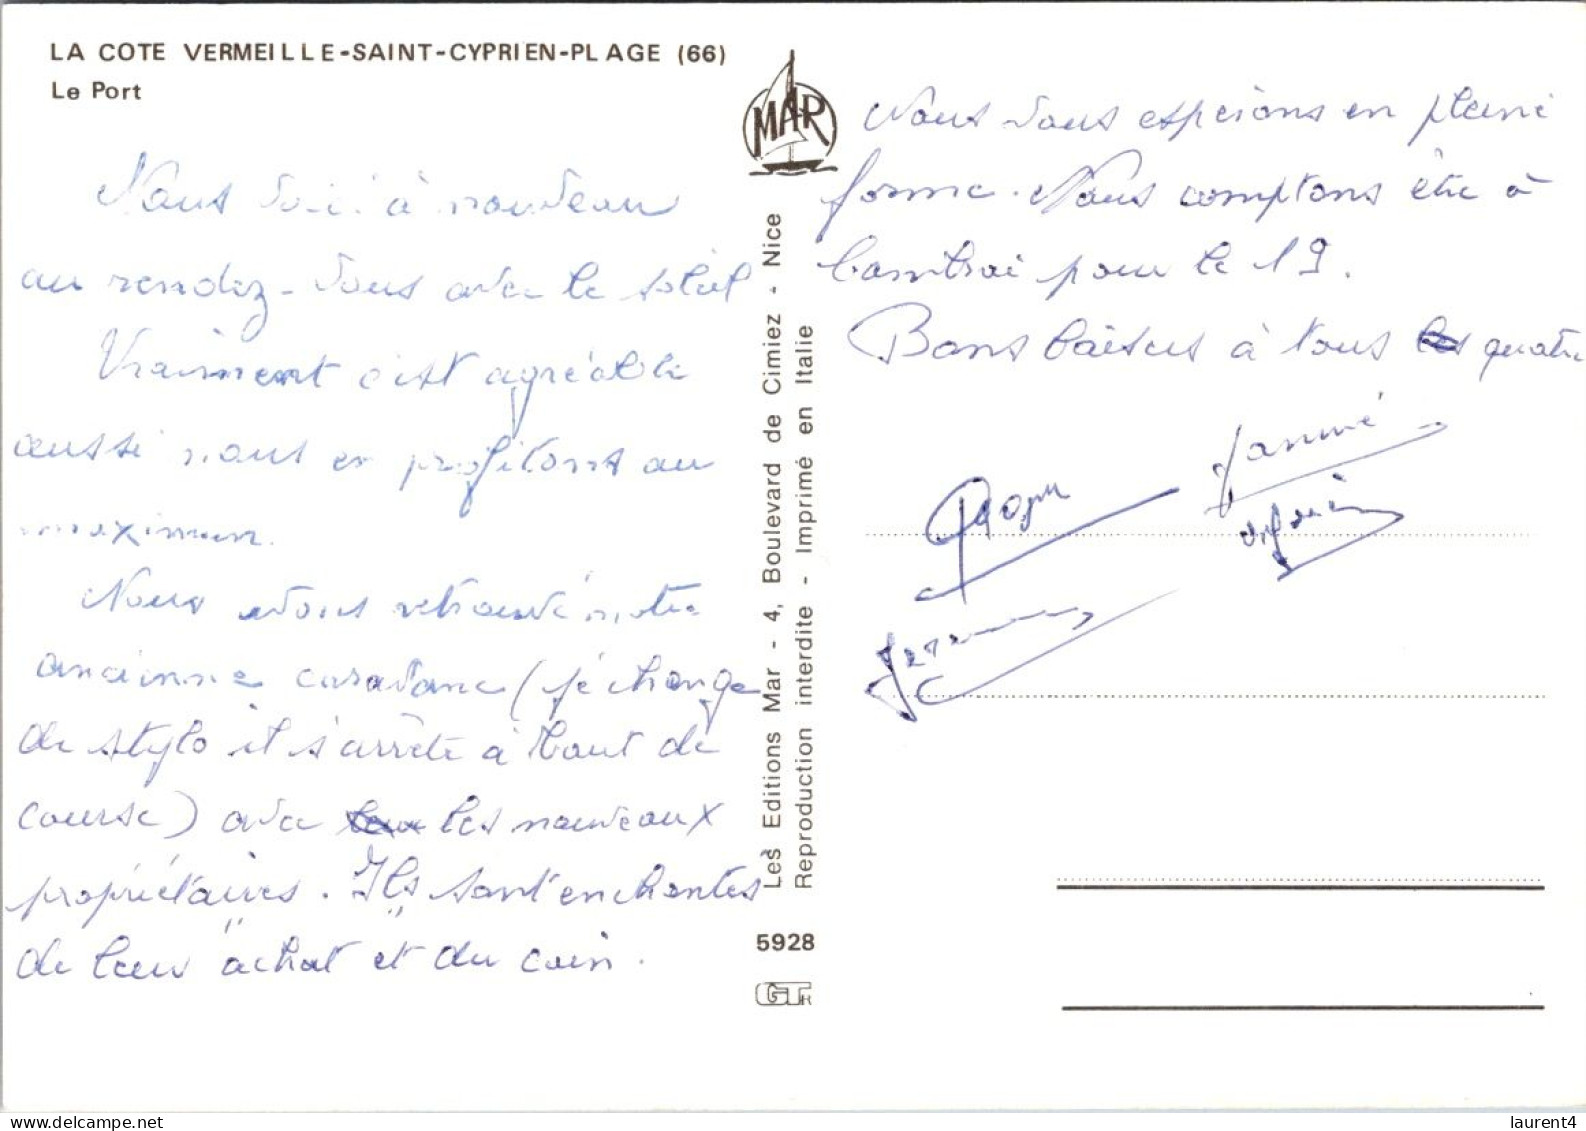 LA COTE VERMEILLE-SAINT-CYPRIEN-PLAGE (66)
Le Port
Nous voici à nouveau
au rendez-vous avec le soleil
Vraiment c'est agréable
aussi nous en profitons au
maximum.
Nous avons retrouvé notre
ancienne caravane (je change
de stylo il s'arrête à bout de
course) avec les nouveaux
propriétaires. Ils sont enchantés
de leur "achat" et du coin.
MAR
Les Editions Mar - 4, Boulevard de Cimiez - Nice
Reproduction interdite - Imprimé en Italie
5928
Nous vous espérons en pleine
forme. Nous comptons être à
Cambrai pour le 19.
Bons baisers à tous les quatre
Jannine
Roger
laurent4